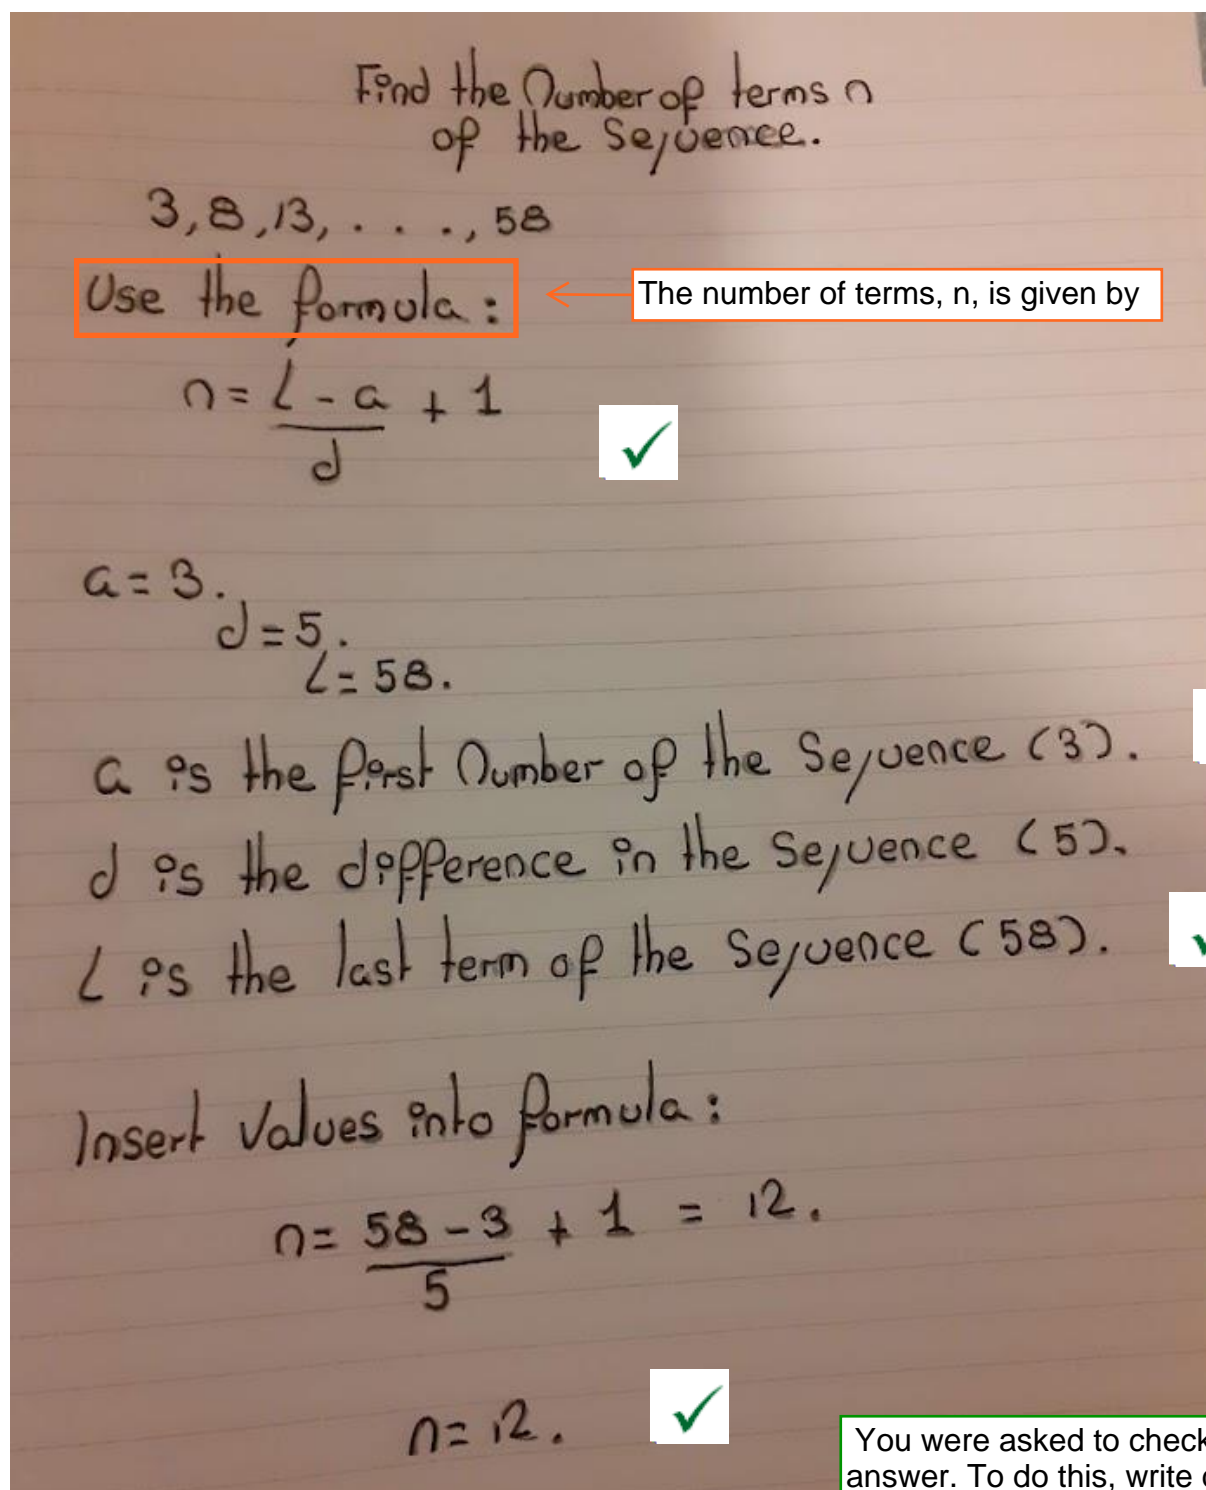 Find the Number of terms n
of the Sequence.
3, 8, 13, . . ., 58
Use the formula:
The number of terms, n, is given by
n = L - a + 1
d
a = 3.
d = 5.
L = 58.
a is the first Number of the Sequence (3).
d is the difference in the Sequence (5).
L is the last term of the Sequence (58).
Insert Values into formula:
n = 58 - 3 + 1 = 12.
5
n = 12.
You were asked to check
answer. To do this, write